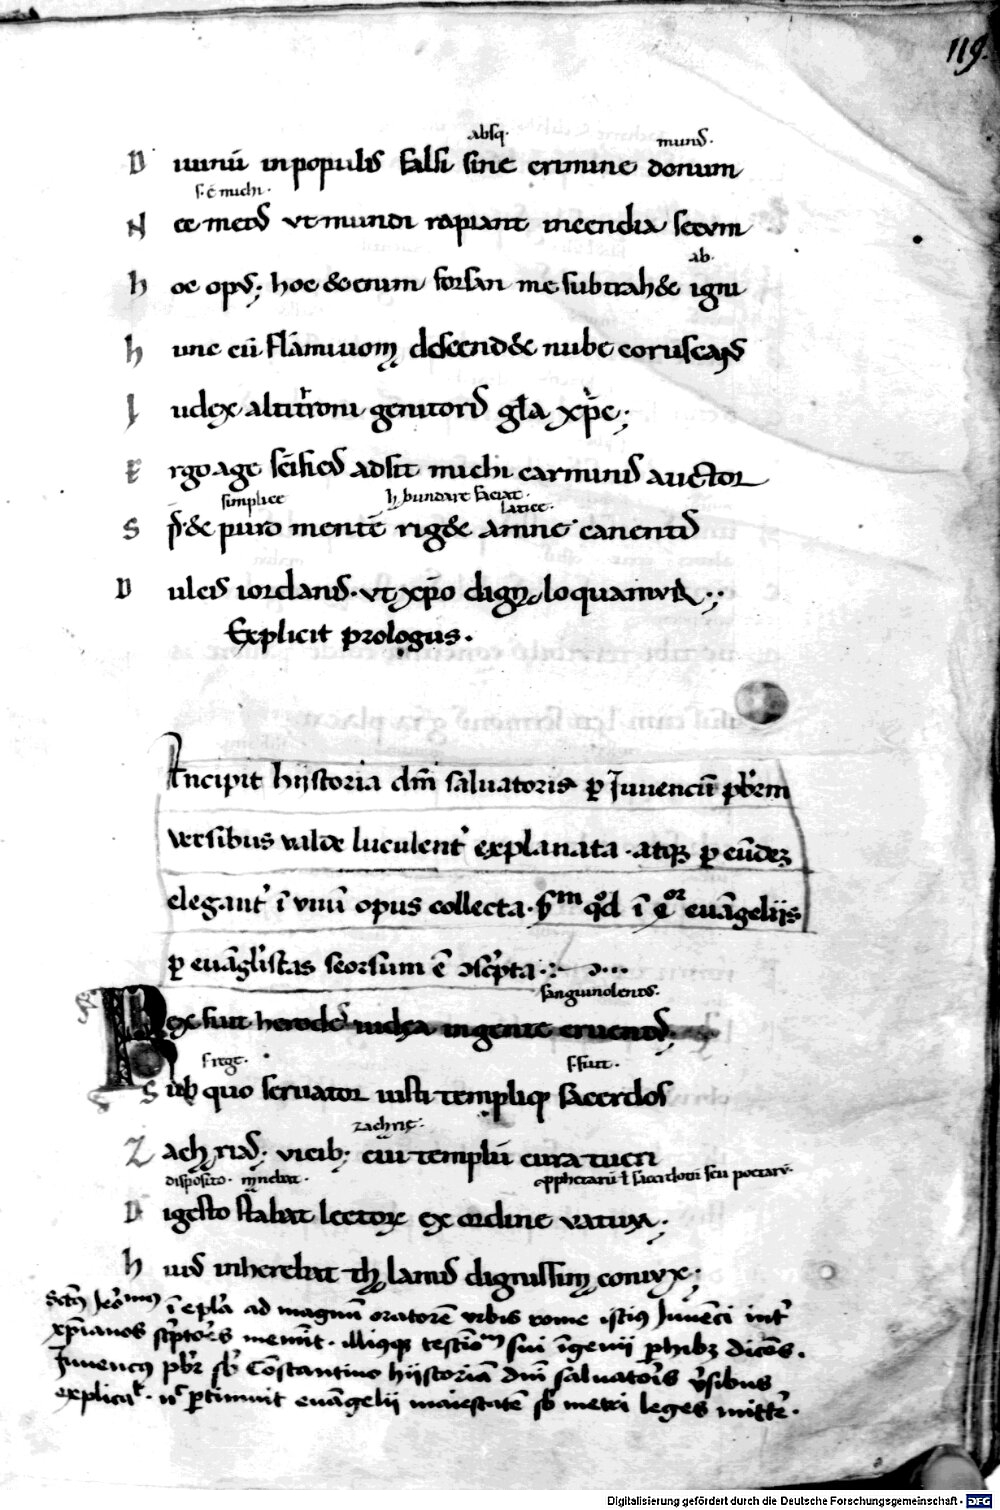 119.
absq; mund.
D iuinū in populis falsi sine crimine donum
s. ē michi.
N ec metus vt mundi rapiant incendia secum
ab.
h oc opus; hoc &enim forsan me subtrah& igni
h unc cū flāmiuoma descend& nube coruscans
I udex altithroni genitoris gl̄a xp̄e;
E rgo age sc̄ificus adsit michi carminis auctor
simplice habundare faciat. latice.
S p̄s & puro mentē riget amne canentis
D ulcis iordanis. vt xp̄o digna loquamur;
Explicit prologus.
Incipit hijstoria dn̄i saluatoris ꝑ Iuuencū pb̄rm
versibus valde luculent' explanata . atqꝫ ꝑ eūdeꝫ
elegant' ī vnū opus collecta . scdm qd ī qor euāgeliis
ꝑ euāglistas seorsum ē ↄscpta
sanguinolentus.
Rex fuit herodes iudęa in gente cruentus;
s. rege. s. fuit.
S ub quo seruator iusti templiq; sacerdos
zacharię.
Z acharias; vicib; cui templū cura tueri
disposito. manebat. ꝓphetarū ł sacerdotū seu poetarū.
D igesto stabat lectorum ex ordine vatum;
h uius inherebat thalamis dignissima coniux;
Sctūs Iero᷒nim᷒ ī epla ad magnū oratorē vrbis rome istius Iuuēci int'
xpianos scptores memīt . illiusqꝫ testīoīum sui īgenii phibꝫ dicēs .
Iuuencus pbr sb Cōstantino hijstoriā dnī saluatoris ūsibus
explicat . nec ꝑtimuit euāgelii maiestatē sb metri leges mitte' .
Digitalisierung gefördert durch die Deutsche Forschungsgemeinschaft - DFG